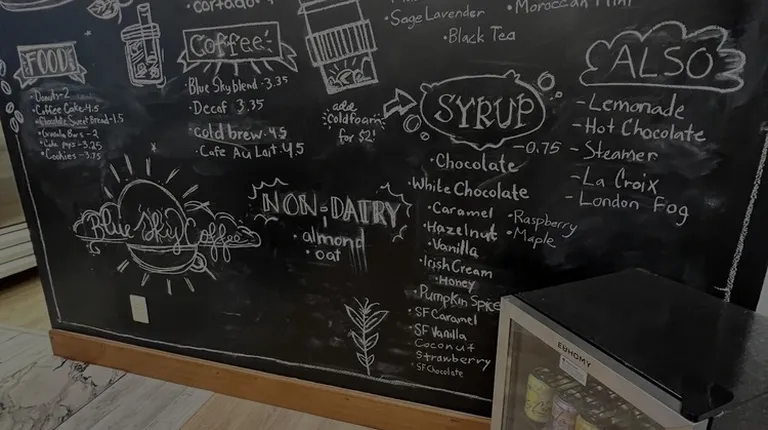 cortado
Sage Lavender
• Moroccan Mint
• Black Tea
FOOD
Donuts - 2
Coffee Cake 4.5
Sweet Bread - 1.5
Granola Bars - 2
Cake pops - 3.25
Cookies - 3.75
Coffee
Blue Sky blend • 3.35
Decaf 3.35
cold brew 4.5
Cafe Au Lait 4.5
add
cold foam
for $2!
SYRUP
- 0.75
• Chocolate
White Chocolate
• Caramel
• Hazelnut
• Vanilla
• Irish Cream
• Honey
• Pumpkin Spice
• SF Caramel
• SF Vanilla
Coconut
Strawberry
• SF Chocolate
• Raspberry
• Maple
ALSO
- Lemonade
- Hot Chocolate
- Steamer
- La Croix
- London Fog
Blue Sky Coffee
NON-DAIRY
• almond
• oat
EUHOMY